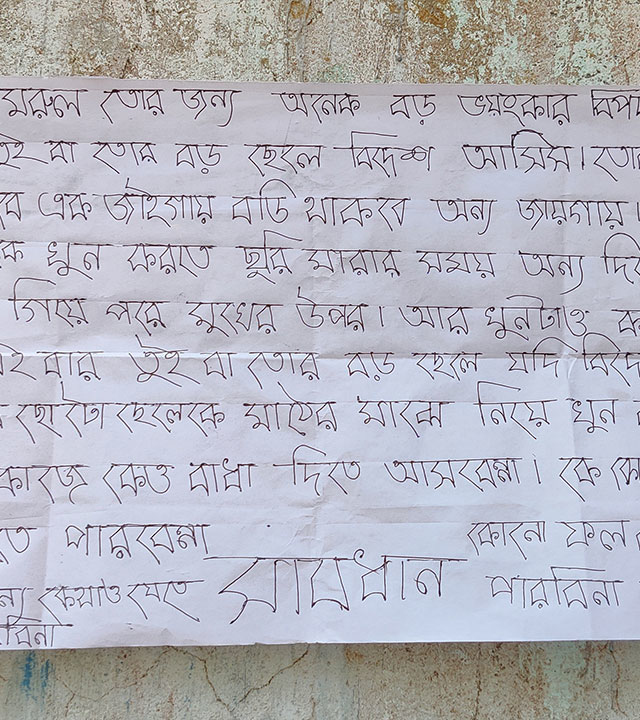 মরুল তোর জন্য অনেক বড় ভয়ংকার বিপদ
তুই বা তোর বড় ছেলে বিদেশ আসিস। তোর
এক জাইগায় বডি থাকবে অন্য জায়গায়।
খুন করতে ছুরি মারার সময় অন্য দি
গিয়ে পরে মুখের উপর। আর খুনটাও ক
বার তুই বা তোর বড় ছেলে যদি বিদে
ছোটো ছেলেকে মাঠের মাঝে নিয়ে খুন
কাজে কেও বাধা দিতে আসবেনা। কে কো
তে পারবেনা
কোনো ফল
সাবধান
কোথাও যেতে
পারবিনা
বিনা